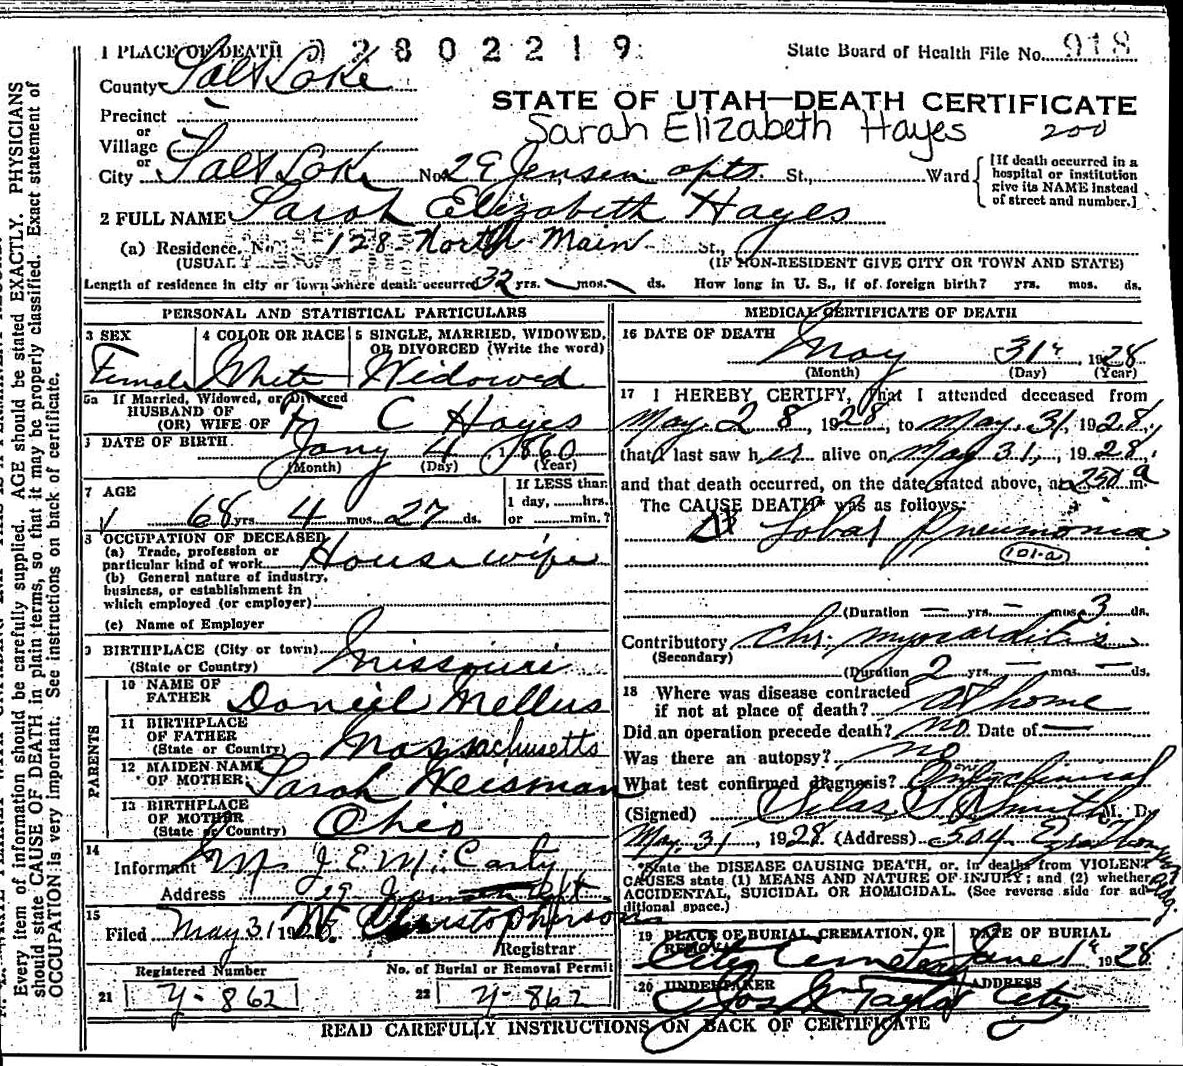 1 PLACE OF DEATH 2802219 State Board of Health File No. 918
County Salt Lake
STATE OF UTAH—DEATH CERTIFICATE
Precinct
Sarah Elizabeth Hayes 200
or
Village
or
City Salt Lake No. 29 Jensen apts. St., Ward
[If death occurred in a hospital or institution give its NAME instead of street and number.]
2 FULL NAME Sarah Elizabeth Hayes
(a) Residence. No. 128 North Main St.,
(USUAL (IF NON-RESIDENT GIVE CITY OR TOWN AND STATE)
Length of residence in city or town where death occurred 32 yrs. — mos. — ds. How long in U. S., if of foreign birth? yrs. mos. ds.
PERSONAL AND STATISTICAL PARTICULARS
3 SEX Female
4 COLOR OR RACE White
5 SINGLE, MARRIED, WIDOWED, OR DIVORCED (Write the word) Widowed
5a If Married, Widowed, or Divorced
HUSBAND OF
(OR) WIFE OF F C Hayes
6 DATE OF BIRTH Jany 4, 1860
(Month) (Day) (Year)
7 AGE 68 yrs. 4 mos. 27 ds.
If LESS than
1 day, hrs.
or min.?
8 OCCUPATION OF DECEASED
(a) Trade, profession or
particular kind of work Housewife
(b) General nature of industry,
business, or establishment in
which employed (or employer)
(c) Name of Employer
9 BIRTHPLACE (City or town)
(State or Country) Missouri
PARENTS
10 NAME OF
FATHER Daniel Mellus
11 BIRTHPLACE
OF FATHER
(State or Country) Massachusetts
12 MAIDEN NAME
OF MOTHER: Sarah Weisman
13 BIRTHPLACE
OF MOTHER
(State or Country) Ohio
14
Informant Mrs J E McCarty
Address 29 Jensen Apt
15
Filed May 31 1928. Christopherson
Registrar
Registered Number No. of Burial or Removal Permit
21 Y-862 22 Y-862
MEDICAL CERTIFICATE OF DEATH
16 DATE OF DEATH
May 31, 1928
(Month) (Day) (Year)
17 I HEREBY CERTIFY, That I attended deceased from
May 28, 1928, to May 31, 1928,
that I last saw her alive on May 31, 1928,
and that death occurred, on the date stated above, at 250 a m.
The CAUSE DEATH* was as follows:
Lobar Pneumonia
101-a
(Duration — yrs. — mos. 3 ds.
Contributory chr. myocarditis
(Secondary)
(Duration 2 yrs. — mos. — ds.
18 Where was disease contracted
if not at place of death? at home
Did an operation precede death? no. Date of —
Was there an autopsy? no
What test confirmed diagnosis? Only clinical
(Signed) Silas S Smith M. D.
May 31, 1928 (Address) 504 Ezra Thompson Bldg.
*State the DISEASE CAUSING DEATH, or, in deaths from VIOLENT
CAUSES state (1) MEANS AND NATURE OF INJURY; and (2) whether
ACCIDENTAL, SUICIDAL OR HOMICIDAL. (See reverse side for additional space.)
19 PLACE OF BURIAL, CREMATION, OR REMOVAL City Cemetery
DATE OF BURIAL June 1st 1928
20 UNDERTAKER Jos Wm Taylor
ADDRESS City
READ CAREFULLY INSTRUCTIONS ON BACK OF CERTIFICATE
Every item of information should be carefully supplied. AGE should be stated EXACTLY. PHYSICIANS
should state CAUSE OF DEATH in plain terms, so that it may be properly classified. Exact statement of
OCCUPATION is very important. See instructions on back of certificate.